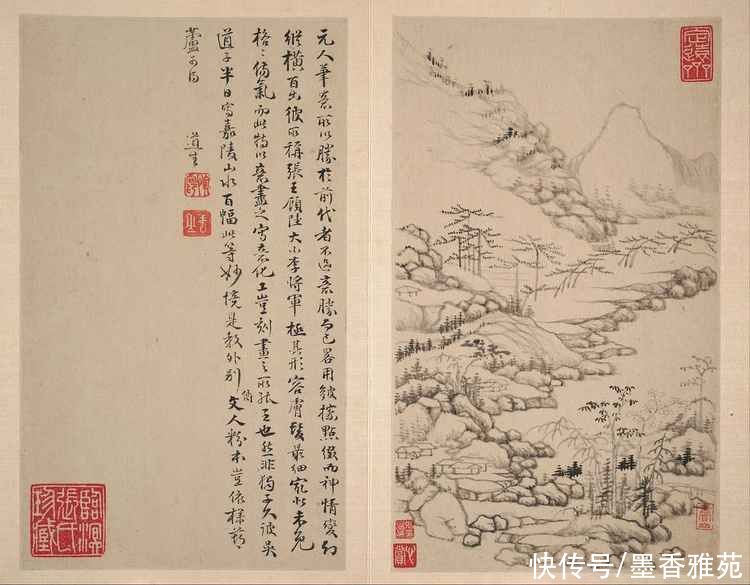 元人筆意所以勝於前代者不過意勝而已畧用皴擦點綴而神情變幻
縱橫百出彼所稱張王顧陸大小李將軍極其形容膚髮最細究未免
格〻傖氣而此特以意畫之寫意化工豈刻畫之所能至也然非獨子久彼吳
道子半日寫嘉陵山水百幅此等妙境是教外別傳文人粉本豈依樣葫
蘆可得 道生
臨溟
張氏
珍藏
快传号/墨香雅苑